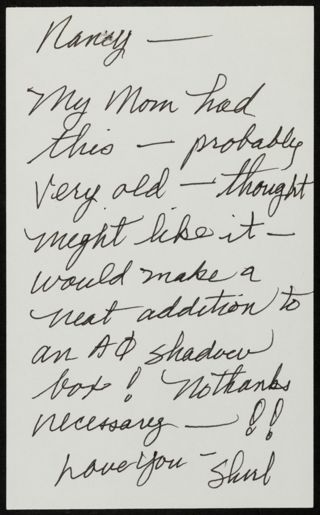 Nancy —
My Mom had
this — probably
very old — thought
might like it —
would make a
neat addition to
an AΦ shadow
box! No thanks
necessary — !!
Love you —
Shirl